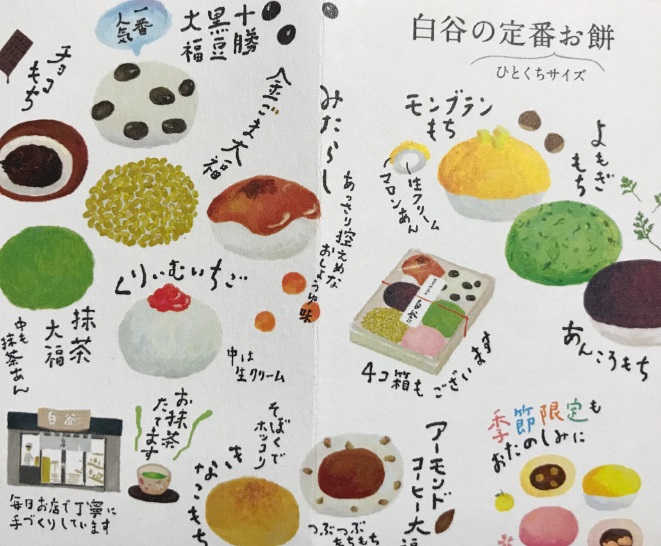 白谷の定番お餅
ひとくちサイズ
一番
人気
十勝
黒豆
大福
チョコ
もち
金ごま大福
みたらし
あっさり控えめな
おしょうゆ味
モンブラン
もち
生クリーム
マロンあん
よもぎ
もち
あんころもち
抹茶
大福
中も
抹茶あん
くりぃむいちご
中は
生クリーム
白谷
4コ箱もございます
白谷
毎日お店で丁寧に
手づくりしています
お抹茶
たてます
そぼくで
ホッコリ
きなこもち
つぶつぶ
もちもち
アーモンド
コーヒー大福
季節限定も
おたのしみに